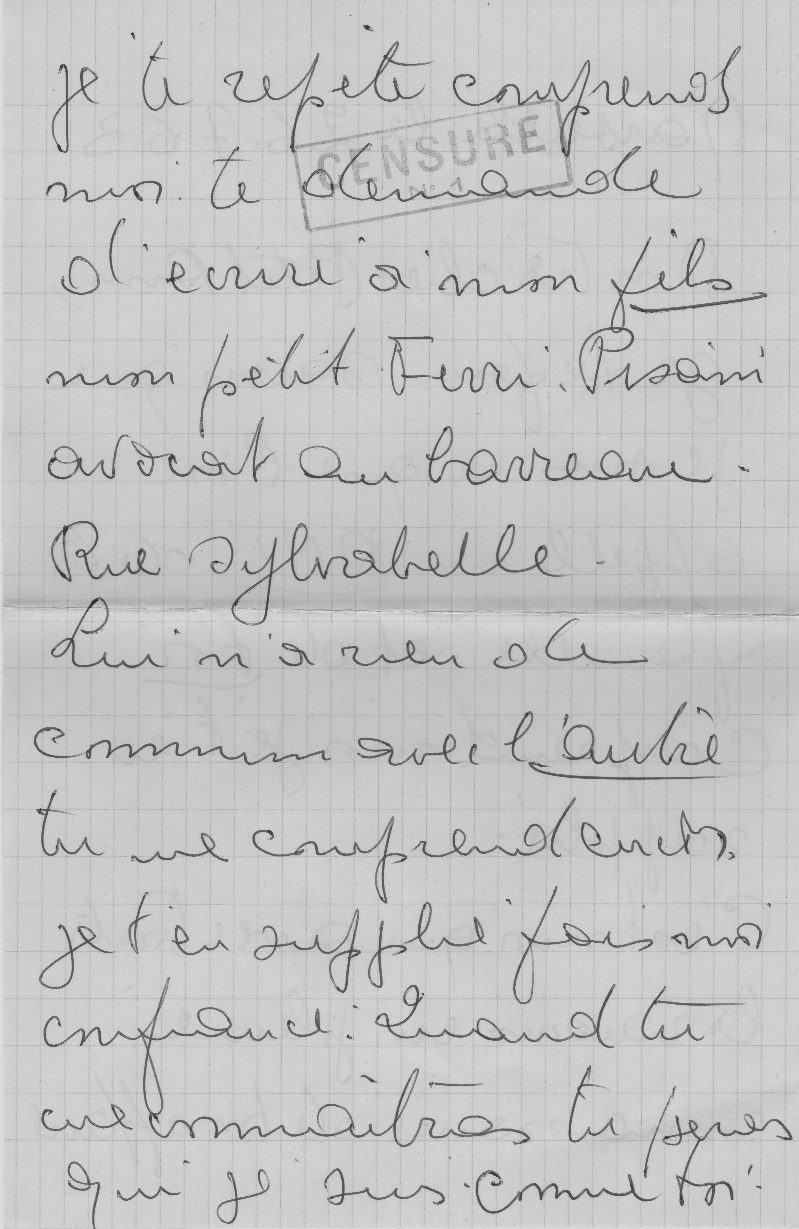 je te repète comprends
CENSURE
N° 1
moi. te demande
d'ecrire à mon fils
mon pétit Ferri. Pisani
avocat au barreau.
Rue Sylvabelle.
Lui n'a rien de
commun avec l'autre
tu me comprends
je t'en supplie fais moi
confiance. Quand tu
me connaîtras tu
qui je suis. comme toi.